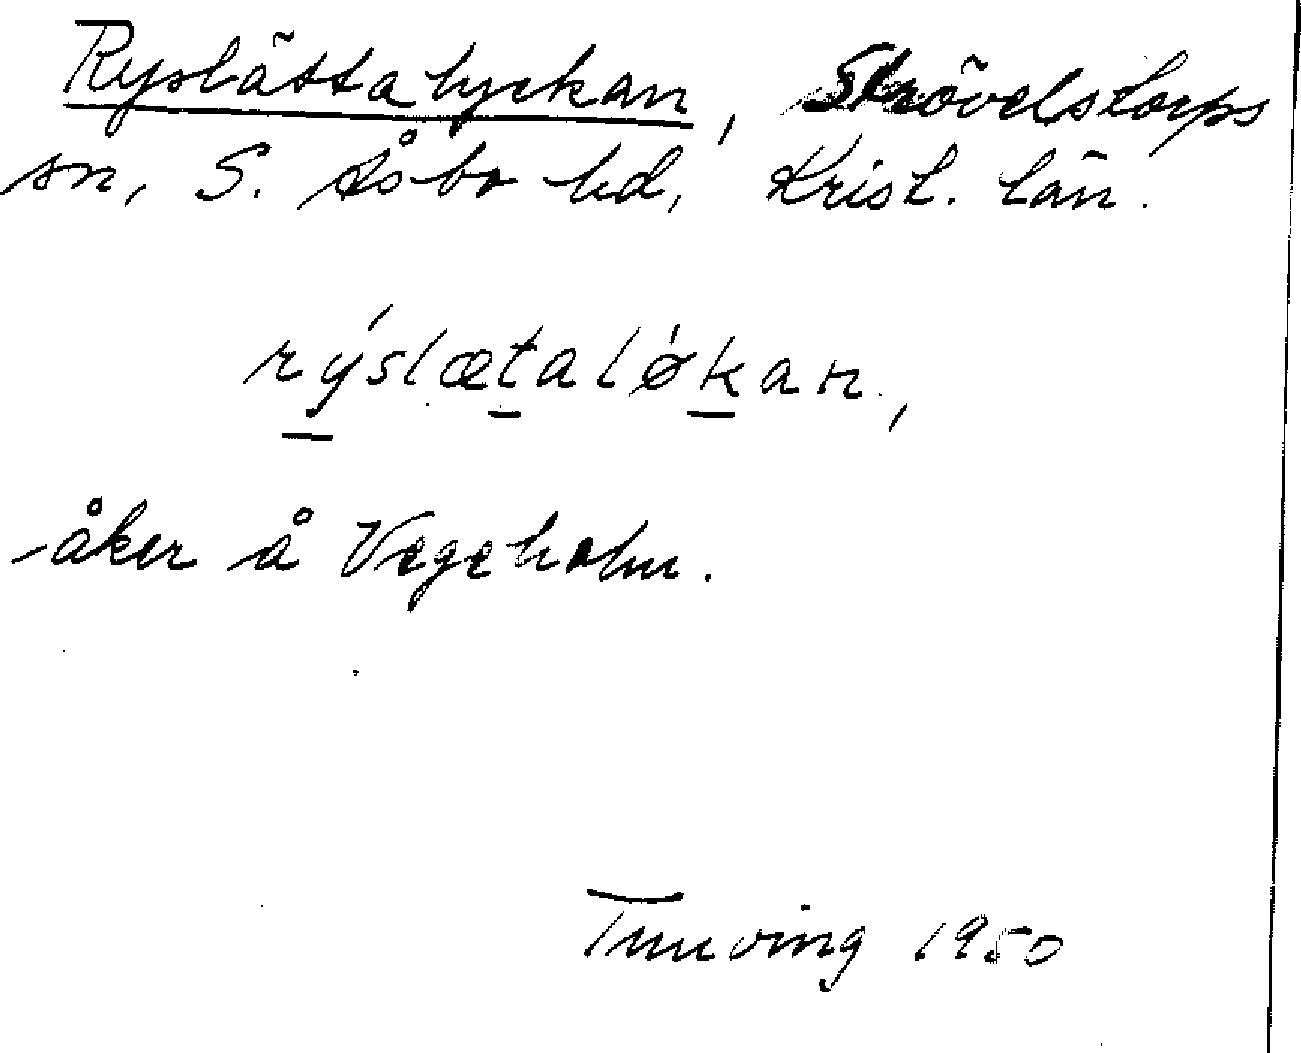 Ryslättalyckan, Strövelstorps
sn, S. Åsbo hd, Krist. län.
rýslætaløkan,
åker å Vegeholm.
Tunving 1950